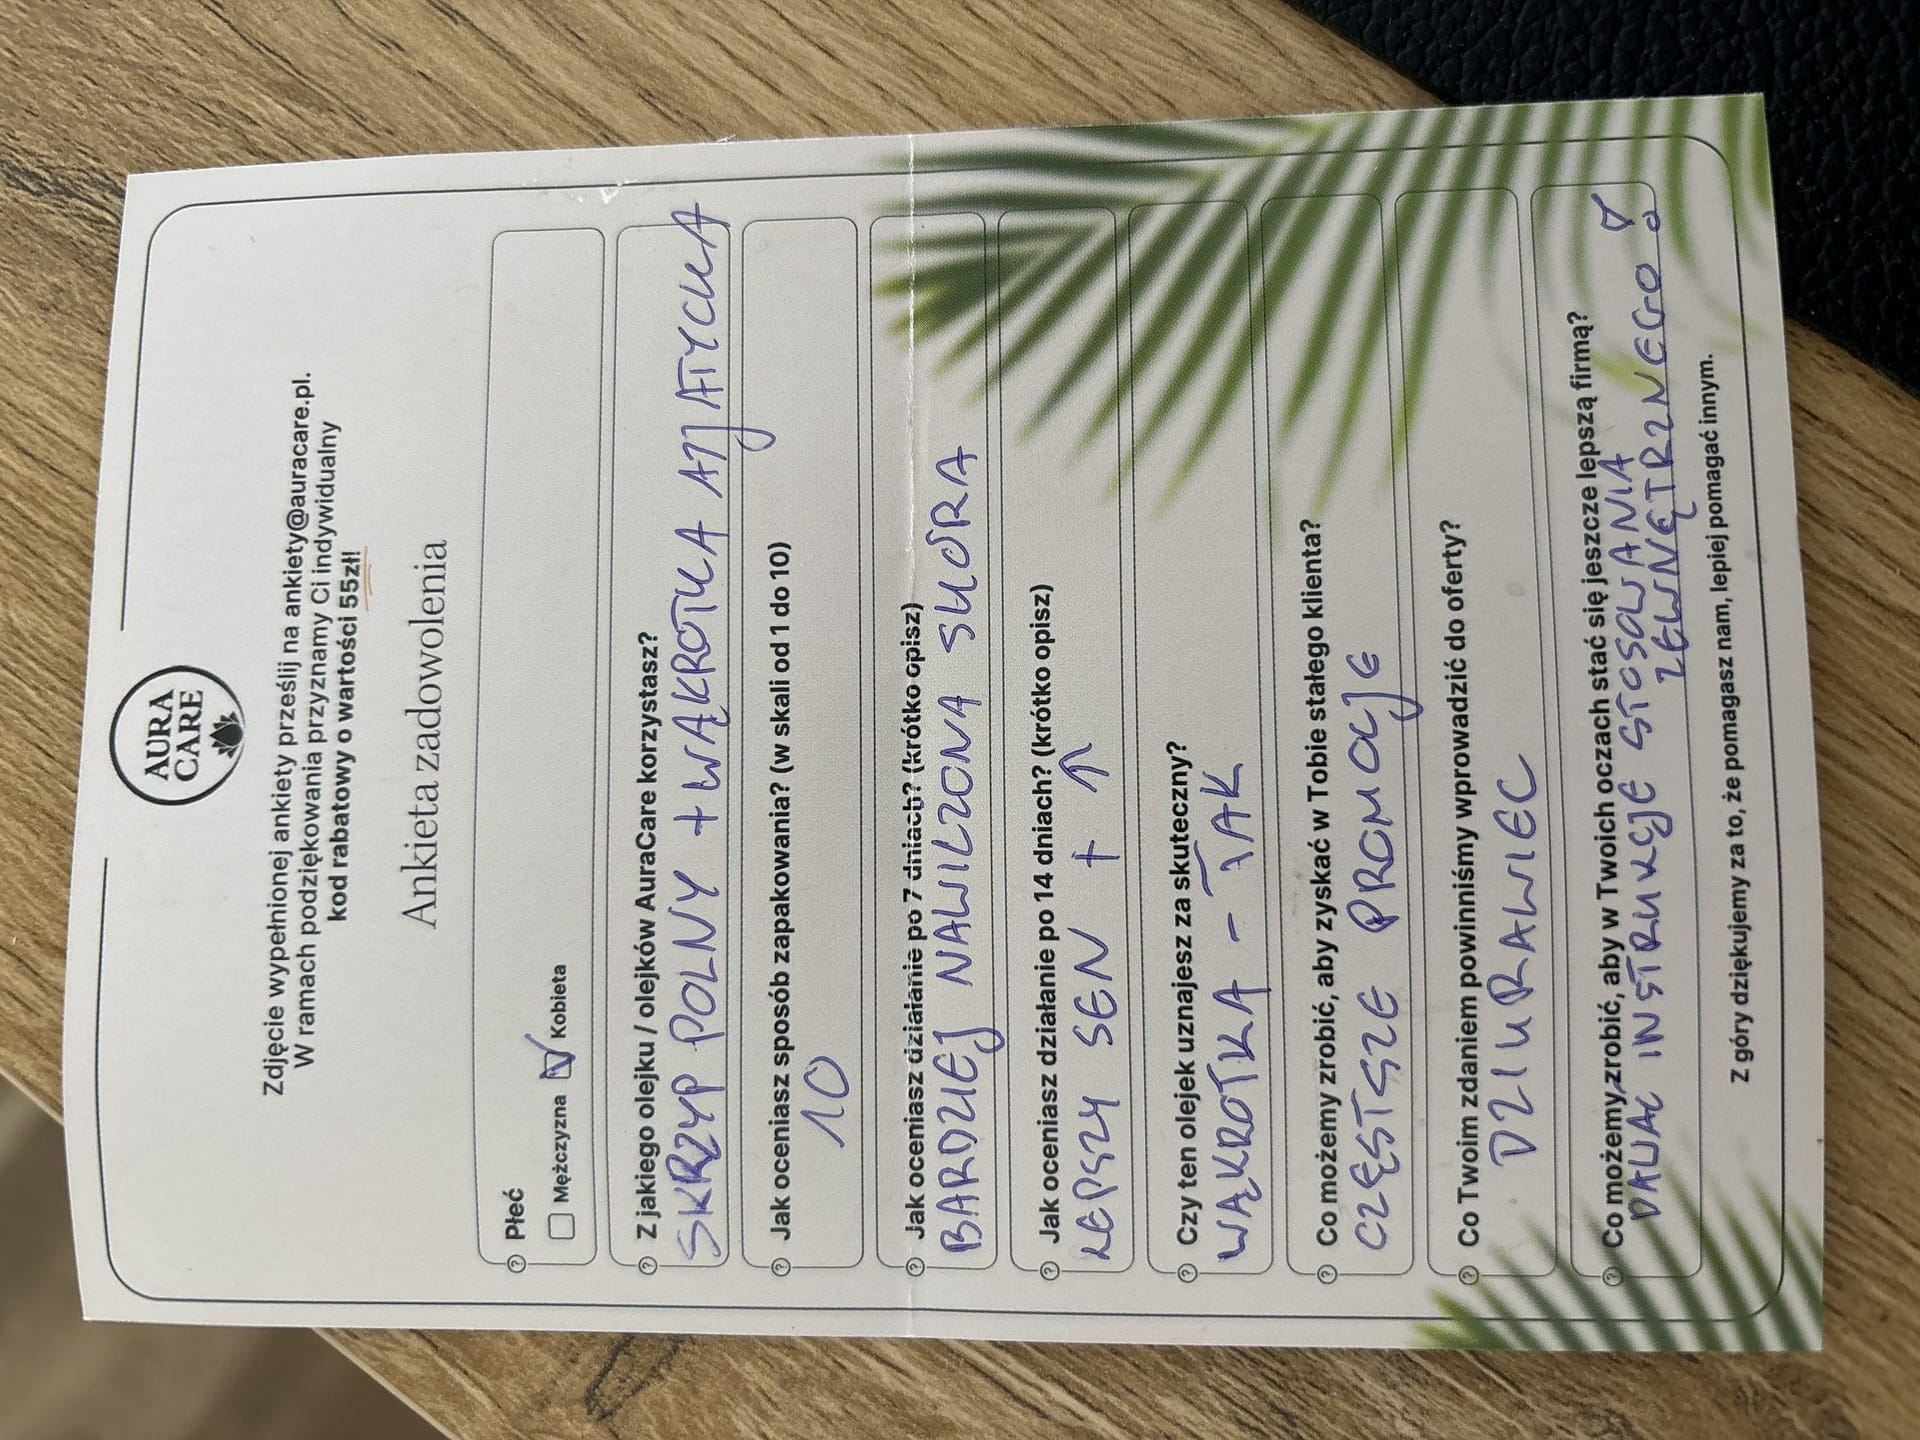 AURA
CARE
Zdjęcie wypełnionej ankiety prześlij na ankiety@auracare.pl.
W ramach podziękowania przyznamy Ci indywidualny
kod rabatowy o wartości 55zł!
Ankieta zadowolenia
Płeć
Mężczyzna Kobieta
Z jakiego olejku / olejków AuraCare korzystasz?
SKRZYP POLNY + WĄKROTKA AZJATYCKA
Jak oceniasz sposób zapakowania? (w skali od 1 do 10)
10
Jak oceniasz działanie po 7 dniach? (krótko opisz)
BARDZIEJ NAWILŻONA SKÓRA
Jak oceniasz działanie po 14 dniach? (krótko opisz)
LEPSZY SEN + ↑
Czy ten olejek uznajesz za skuteczny?
WĄKROTKA - TAK
Co możemy zrobić, aby zyskać w Tobie stałego klienta?
CZĘSTSZE PROMOCJE
Co Twoim zdaniem powinniśmy wprowadzić do oferty?
DZIURAWIEC
Co możemy zrobić, aby w Twoich oczach stać się jeszcze lepszą firmą?
DAWAĆ INSTRUKCJE STOSOWANIA
ZEWNĘTRZNEGO!
Z góry dziękujemy za to, że pomagasz nam, lepiej pomagać innym.